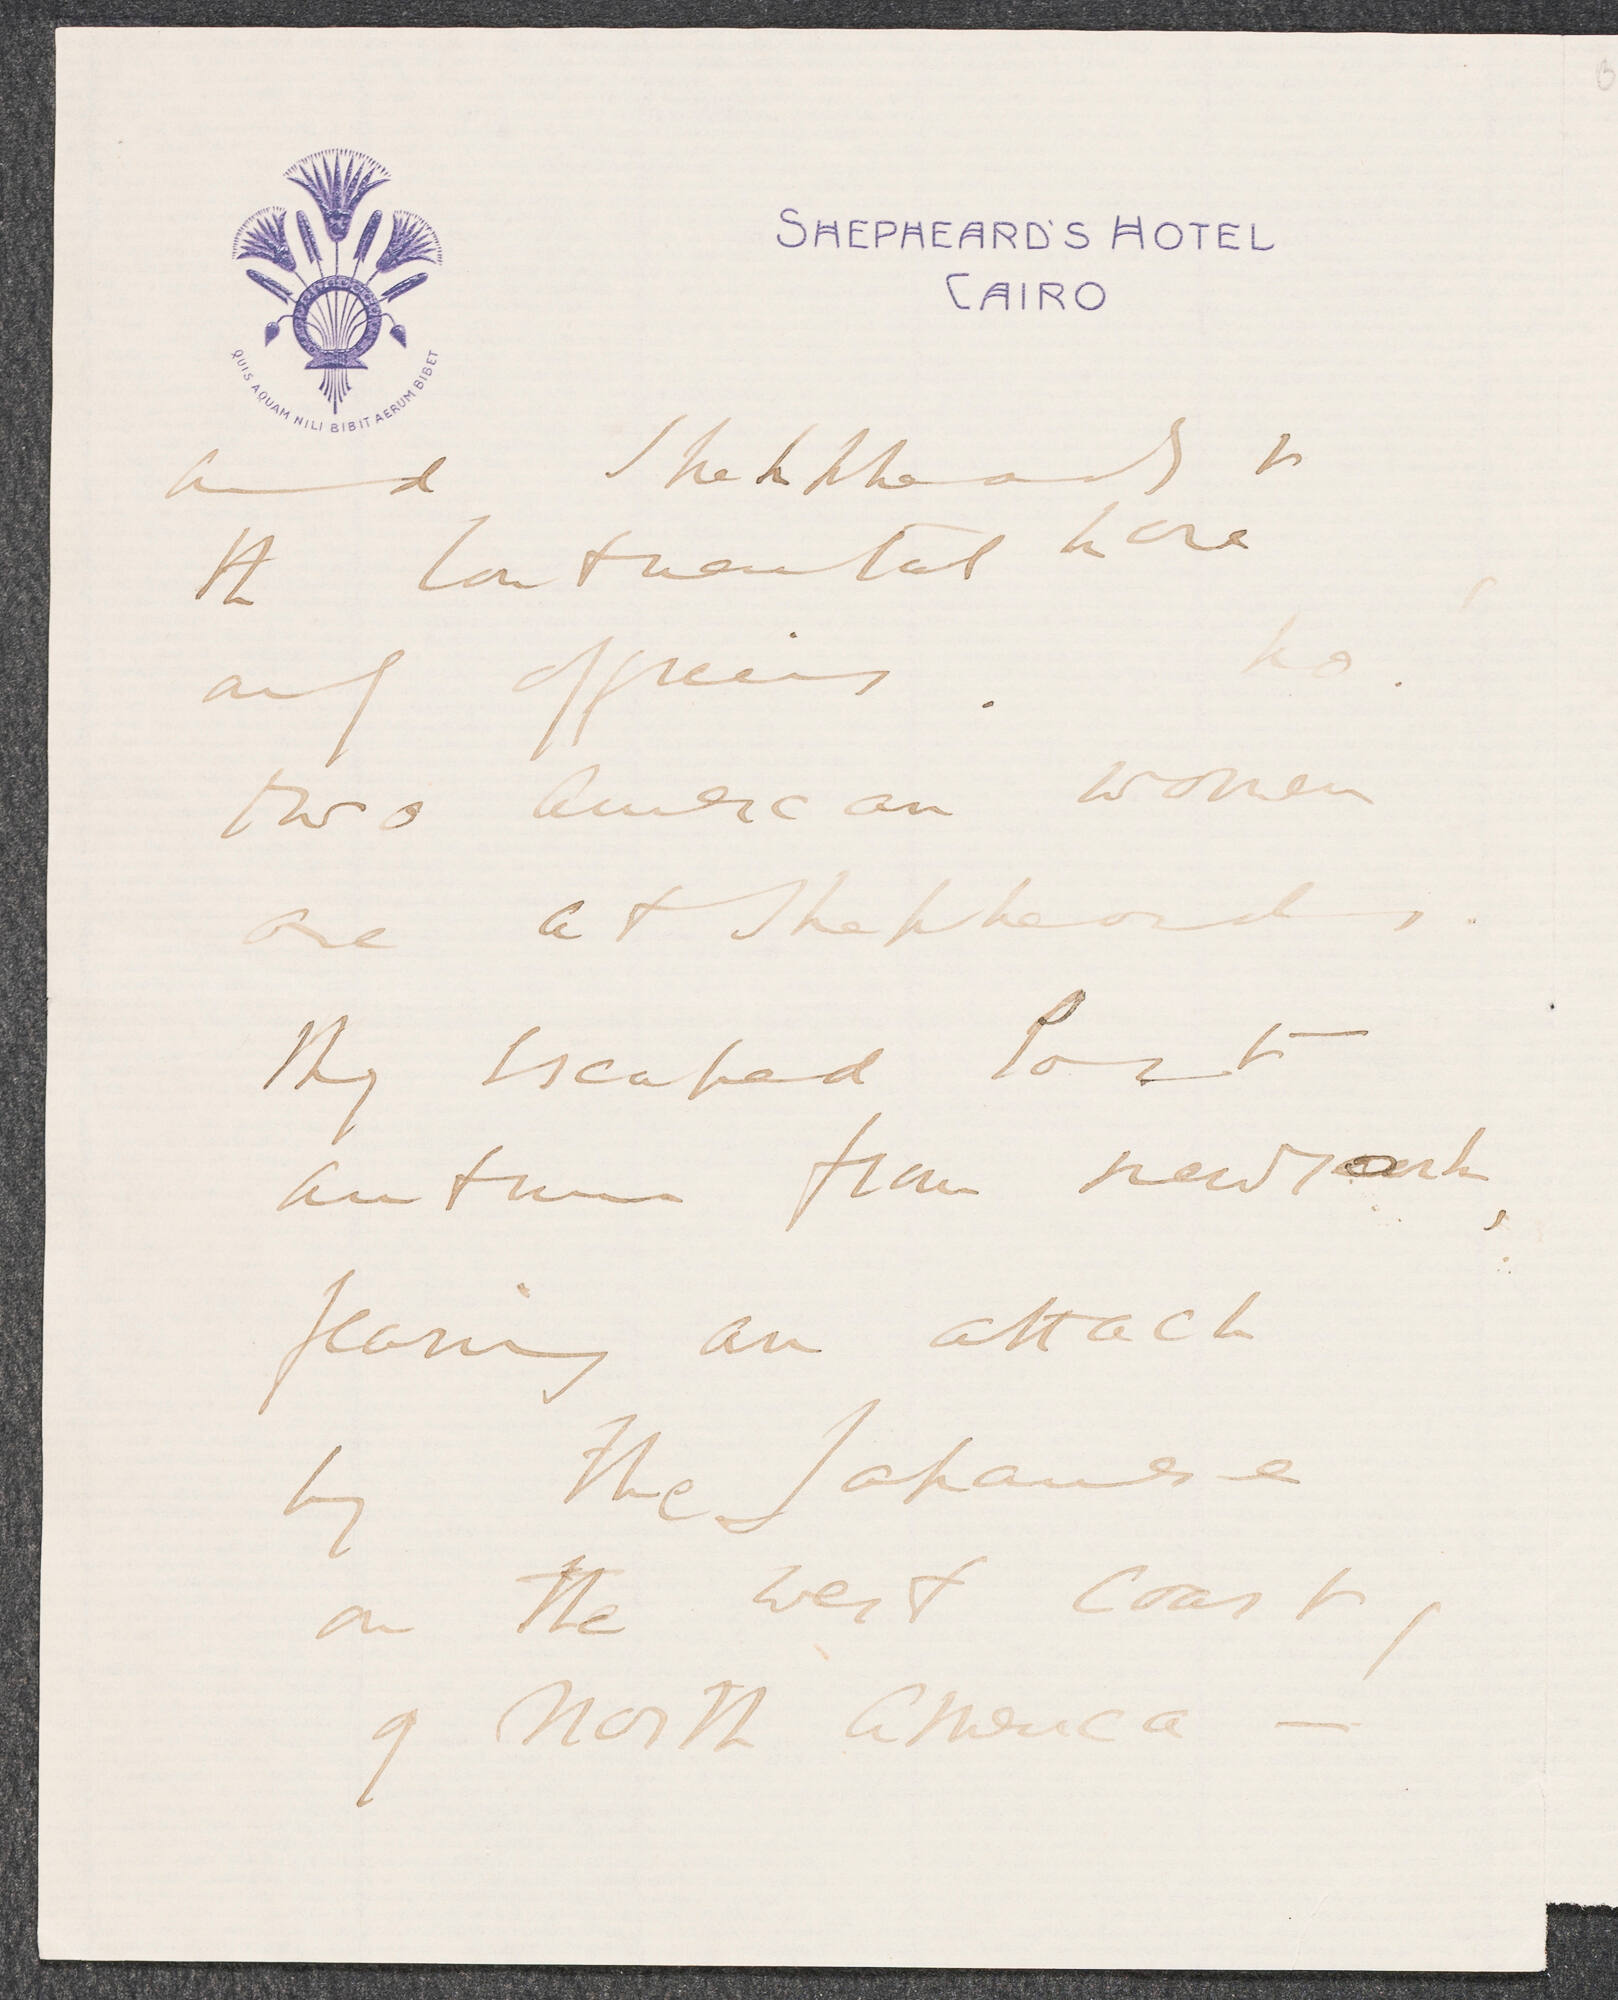 SHEPHEARD'S HOTEL
CAIRO
QUIS AQUAM NILI BIBIT AERUM BIBET
and Shephheards &
the Continental have
only officers. No!
two American women
are at Shepheards.
They escaped last
autumn from newyork,
fearing an attack
by the Japanese
on the West Coast,
of North America —